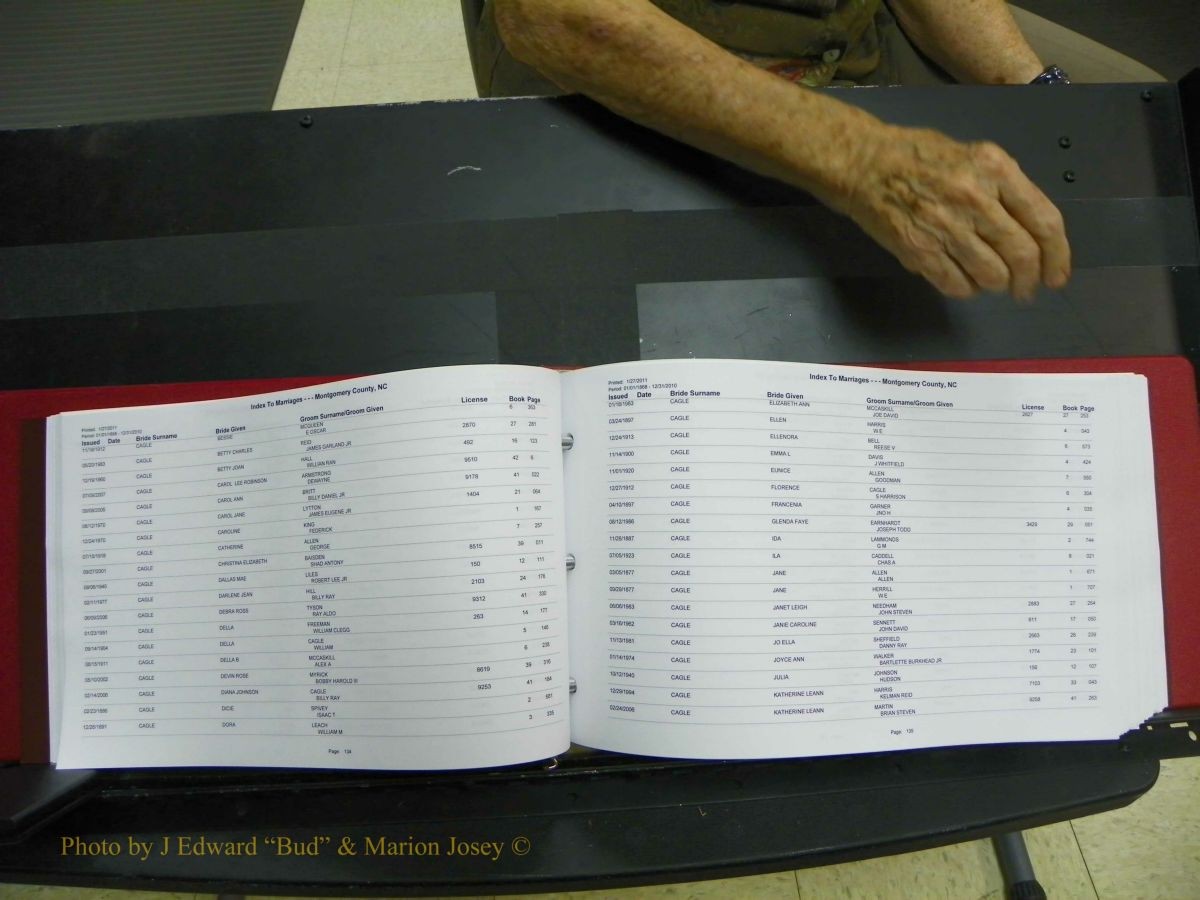 Index To Marriages - - - Montgomery County, NC
Printed: 1/27/2011
Period: 01/01/1868 - 12/31/2010
Issued Date Bride Surname Bride Given Groom Surname/Groom Given License Book Page
11/19/1912 CAGLE BESSIE MCQUEEN 6 353
E OSCAR
05/20/1983 CAGLE BETTY CHARLES REID 2870 27 281
JAMES GARLAND JR
12/19/1960 CAGLE BETTY JOAN HALL 492 16 123
WILLIAN RAN
CAGLE CAROL LEE ROBINSON ARMSTRONG 9510 42 6
DEWAYNE
CAGLE CAROL ANN BRITT 9178 41 022
BILLY DANIEL JR
08/12/1970 CAGLE CAROL JANE LYTTON 1404 21 064
JAMES EUGENE JR
12/24/1870 CAGLE CAROLINE KING 1 167
FEDERICK
07/10/1919 CAGLE CATHERINE ALLEN 7 257
GEORGE
03/27/2001 CAGLE CHRISTINA ELIZABETH BAISDEN 8515 39 011
SHAD ANTONY
CAGLE DALLAS MAE LILES 150 12 111
ROBERT LEE JR
02/11/1977 CAGLE DARLENE JEAN HILL 2103 24 176
BILLY RAY
CAGLE DEBRA ROSS TYSON 9312 41 330
RAY ALDO
01/23/1951 CAGLE DELLA FREEMAN 263 14 177
WILLIAM CLEGG
09/14/1904 CAGLE DELLA CAGLE 5 145
WILLIAM
CAGLE DELLA B MCCASKILL 6 235
ALEX A
05/10/2002 CAGLE DEVIN ROSE MYRICK 8619 39 316
BOBBY HAROLD III
02/14/2006 CAGLE DIANA JOHNSON CAGLE 9253 41 184
BILLY RAY
CAGLE DICIE SPIVEY 2 681
ISAAC T
12/26/1891 CAGLE DORA LEACH 3 335
WILLIAM M
Page 134
Index To Marriages - - - Montgomery County, NC
Printed: 1/27/2011
Period: 01/01/1868 - 12/31/2010
Issued Date Bride Surname Bride Given Groom Surname/Groom Given License Book Page
01/18/1983 CAGLE ELIZABETH ANN MCCASKILL 2827 27 253
JOE DAVID
03/24/1897 CAGLE ELLEN HARRIS 4 042
W E
12/24/1913 CAGLE ELLENORA BELL 6 573
REESE V
11/14/1900 CAGLE EMMA L DAVIS 4 424
J WHITFIELD
11/01/1920 CAGLE EUNICE ALLEN 7
GOODMAN
12/27/1912 CAGLE FLORENCE CAGLE 6 304
S HARRISON
04/10/1897 CAGLE FRANCENIA GARNER 4 035
JNO H
08/12/1986 CAGLE GLENDA FAYE EARNHARDT 3429 29 551
JOSEPH TODD
11/28/1887 CAGLE IDA LAMMONDS 2 744
G M
07/05/1923 CAGLE ILA CADDELL 8 021
CHAS A
03/05/1877 CAGLE JANE ALLEN 1 671
ALLEN
09/29/1877 CAGLE JANE HERRILL 1 707
W E
CAGLE JANET LEIGH NEEDHAM 2883 27 264
JOHN STEVEN
03/16/1962 CAGLE JANIE CAROLINE SENNETT 611 17 050
JOHN DAVID
11/13/1981 CAGLE JO ELLA SHEFFIELD 2663 26 239
DANNY RAY
01/14/1974 CAGLE JOYCE ANN WALKER 1774 23 101
BARTLETTE BURKHEAD JR
10/12/1940 CAGLE JULIA JOHNSON 156 12 107
HUDSON
12/29/1994 CAGLE KATHERINE LEANN HARRIS 7103 33 043
KELMAN REID
02/24/2006 CAGLE KATHERINE LEANN MARTIN 9258 41 263
BRIAN STEVEN
Page 135
Photo by J Edward “Bud” & Marion Josey ©